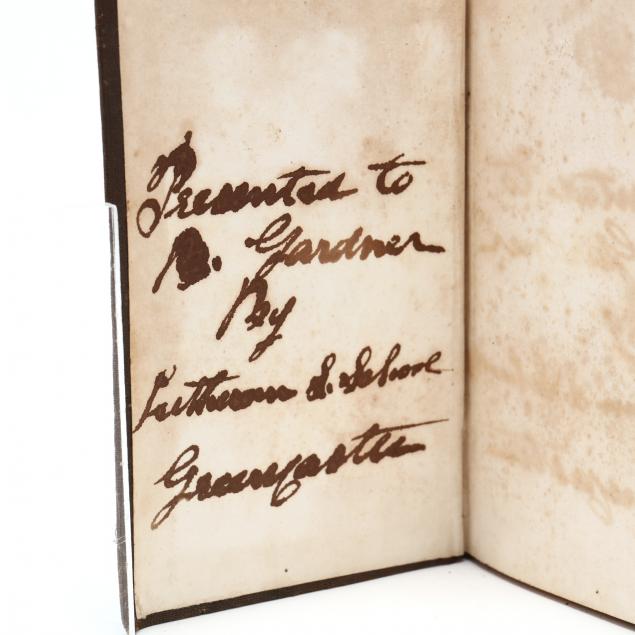 Presented to
B. Gardner
By
Lutheran S. School
Greencastle